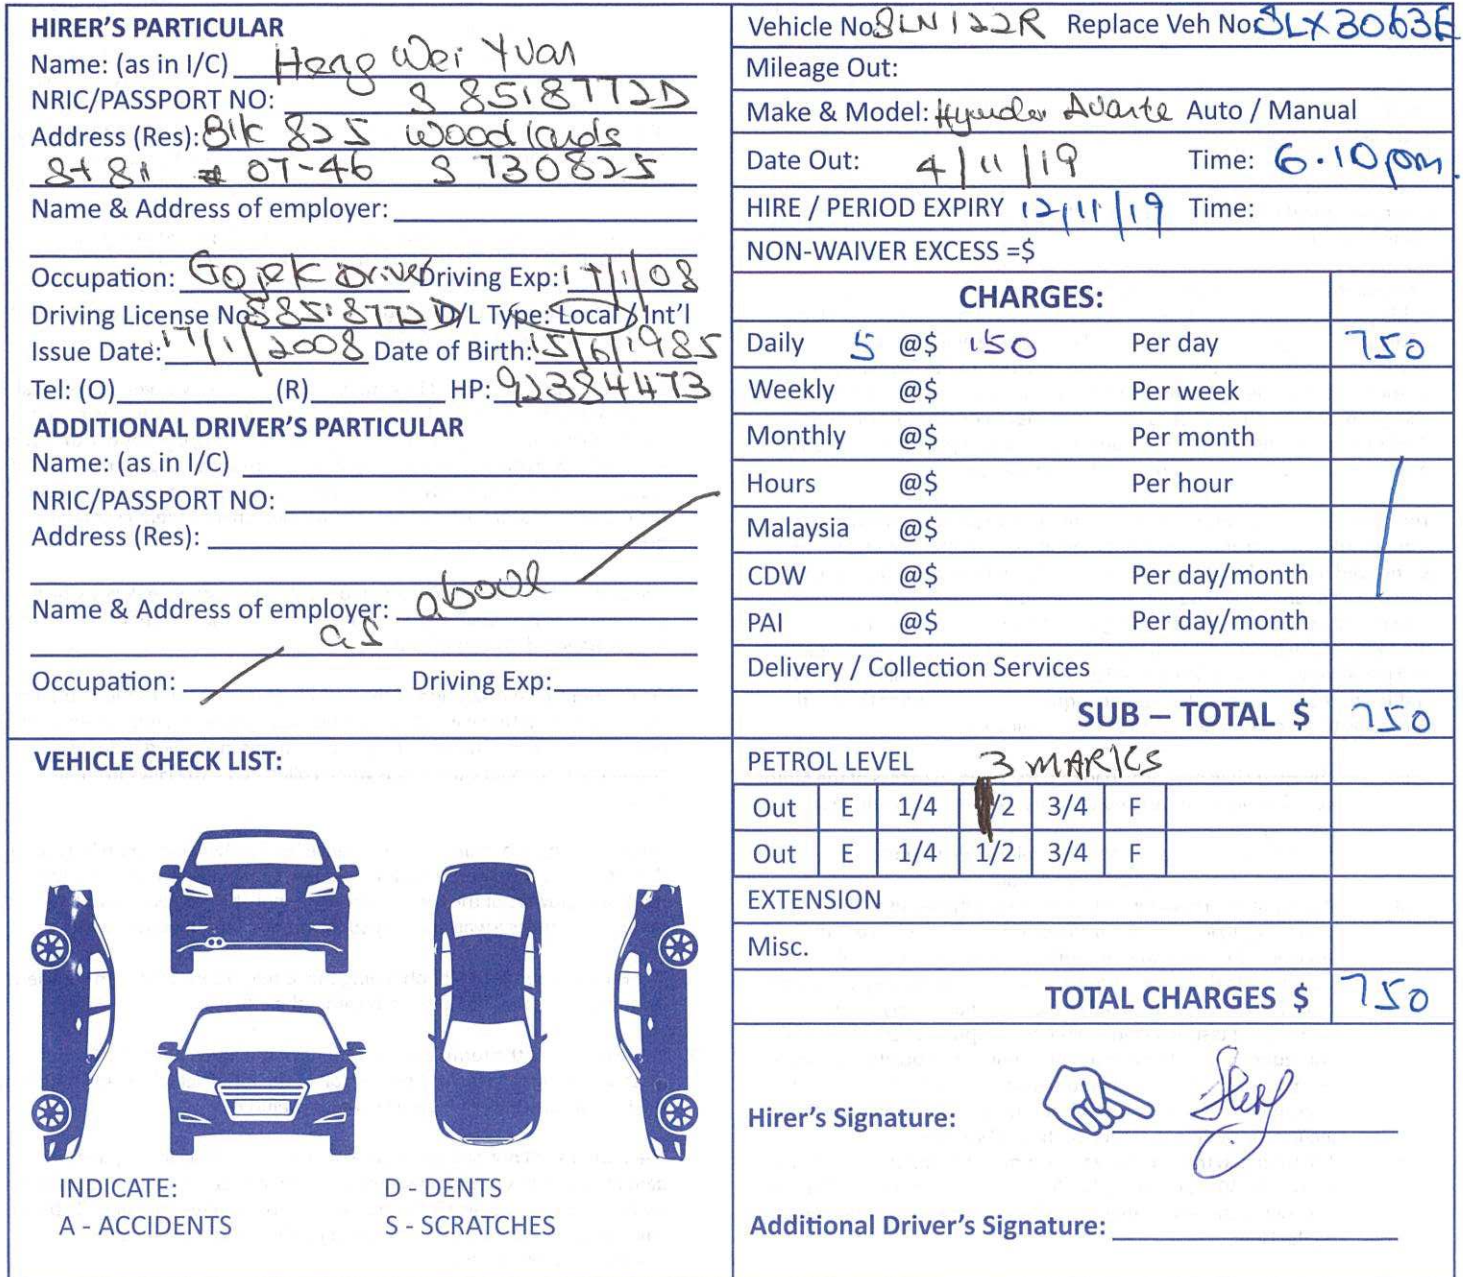 HIRER'S PARTICULAR
Name: (as in I/C) Heng Wei Yuan
NRIC/PASSPORT NO: S 8518772D
Address (Res): Blk 825 Woodlands
St 81 # 07-46 S 730825
Name & Address of employer:
Occupation: Gojek Driver Driving Exp: 17/1/08
Driving License No: S8518772D D/L Type: Local / Int'l
Issue Date: 17/1/2008 Date of Birth: 15/6/1985
Tel: (O) (R) HP: 92384473
ADDITIONAL DRIVER'S PARTICULAR
Name: (as in I/C)
NRIC/PASSPORT NO:
Address (Res):
Name & Address of employer: above
as
Occupation: Driving Exp:
VEHICLE CHECK LIST:
INDICATE: D - DENTS
A - ACCIDENTS S - SCRATCHES
Vehicle No: SLN122R Replace Veh No: SLX3063E
Mileage Out:
Make & Model: Hyundai Avante Auto / Manual
Date Out: 4/11/19 Time: 6.10pm.
HIRE / PERIOD EXPIRY 12/11/19 Time:
NON-WAIVER EXCESS =$
CHARGES:
Daily 5 @$ 150 Per day 750
Weekly @$ Per week
Monthly @$ Per month
Hours @$ Per hour
Malaysia @$
CDW @$ Per day/month
PAI @$ Per day/month
Delivery / Collection Services
SUB – TOTAL $ 750
PETROL LEVEL 3 MARKS
Out E 1/4 1/2 3/4 F
Out E 1/4 1/2 3/4 F
EXTENSION
Misc.
TOTAL CHARGES $ 750
Hirer's Signature:
Additional Driver's Signature: